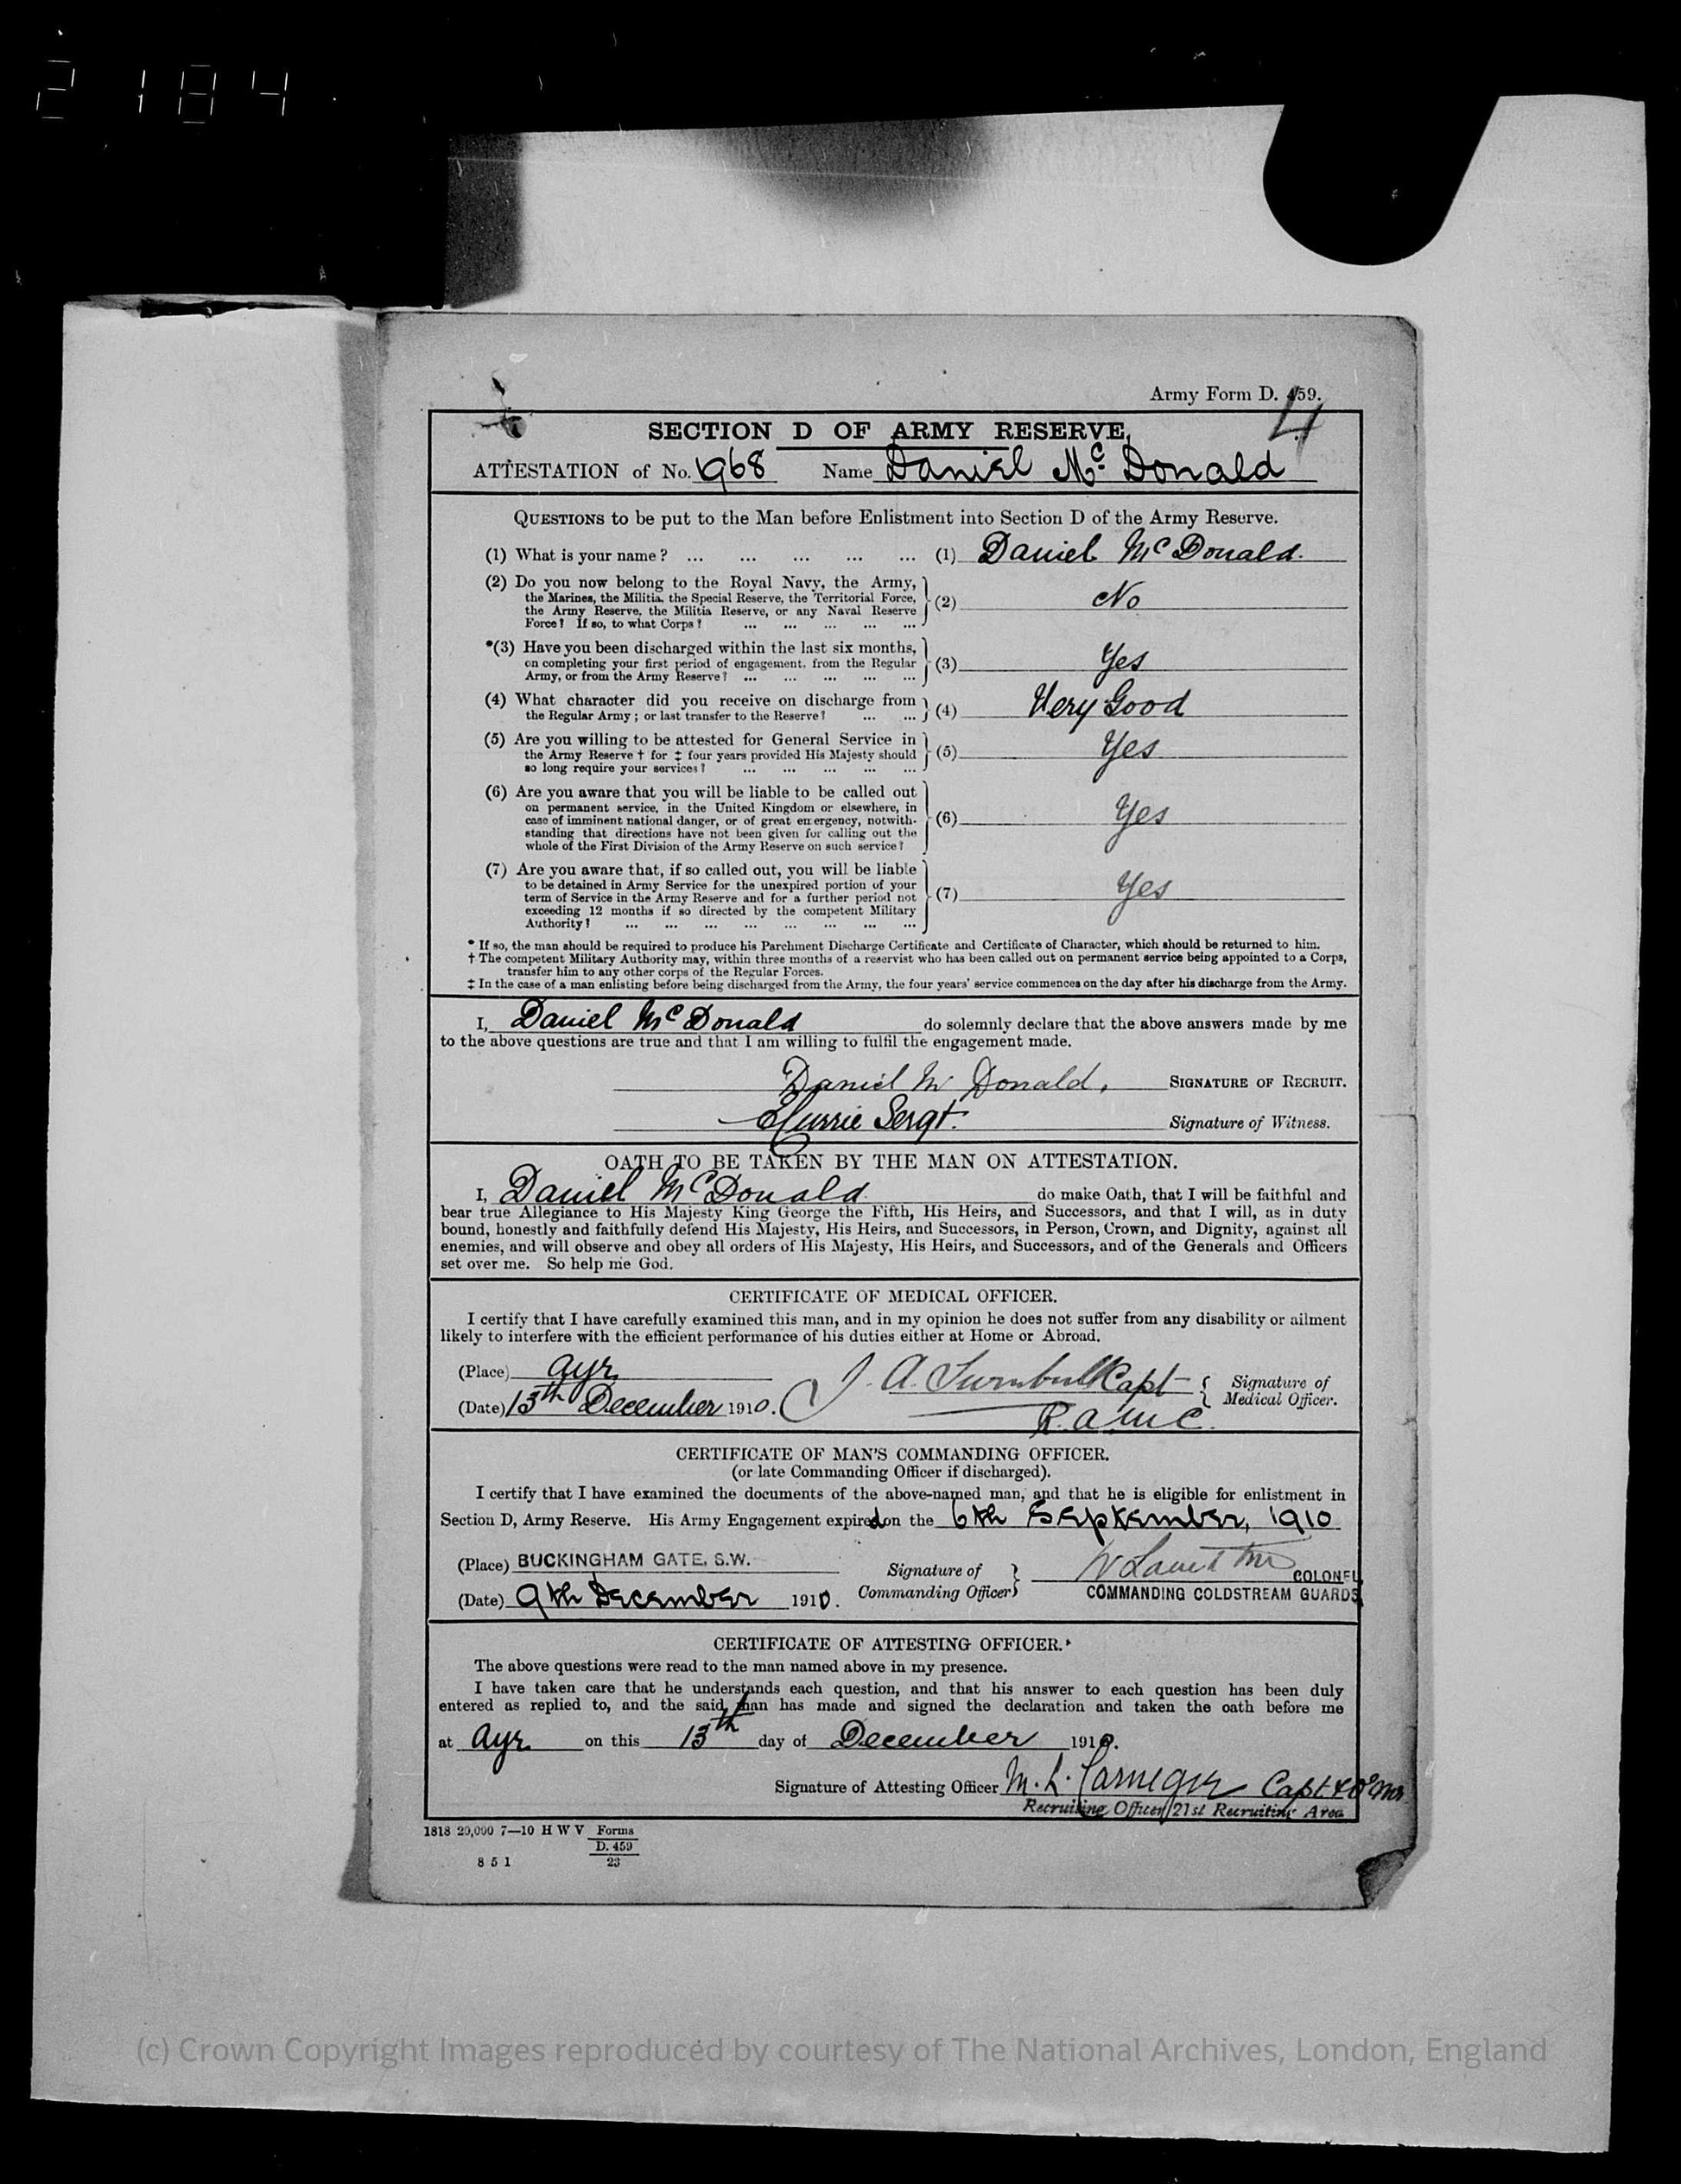 2184
Army Form D. 459.
4
SECTION D OF ARMY RESERVE,
ATTESTATION of No. 1968 Name Daniel McDonald
QUESTIONS to be put to the Man before Enlistment into Section D of the Army Reserve.
(1) What is your name? ... ... ... ... ... (1) Daniel McDonald.
(2) Do you now belong to the Royal Navy, the Army,
the Marines, the Militia, the Special Reserve, the Territorial Force, (2) No
the Army Reserve, the Militia Reserve, or any Naval Reserve
Force? If so, to what Corps? ... ... ... ... ...
*(3) Have you been discharged within the last six months,
on completing your first period of engagement, from the Regular (3) Yes
Army, or from the Army Reserve? ... ... ... ... ...
(4) What character did you receive on discharge from (4) Very Good
the Regular Army; or last transfer to the Reserve? ... ...
(5) Are you willing to be attested for General Service in
the Army Reserve † for ‡ four years provided His Majesty should (5) Yes
so long require your services? ... ... ... ... ...
(6) Are you aware that you will be liable to be called out
on permanent service, in the United Kingdom or elsewhere, in
case of imminent national danger, or of great emergency, notwith- (6) Yes
standing that directions have not been given for calling out the
whole of the First Division of the Army Reserve on such service?
(7) Are you aware that, if so called out, you will be liable
to be detained in Army Service for the unexpired portion of your
term of Service in the Army Reserve and for a further period not (7) Yes
exceeding 12 months if so directed by the competent Military
Authority? ... ... ... ... ... ... ... ...
* If so, the man should be required to produce his Parchment Discharge Certificate and Certificate of Character, which should be returned to him.
† The competent Military Authority may, within three months of a reservist who has been called out on permanent service being appointed to a Corps,
transfer him to any other corps of the Regular Forces.
‡ In the case of a man enlisting before being discharged from the Army, the four years' service commences on the day after his discharge from the Army.
I, Daniel McDonald do solemnly declare that the above answers made by me
to the above questions are true and that I am willing to fulfil the engagement made.
Daniel Mc Donald, SIGNATURE OF RECRUIT.
Currie Sergt. Signature of Witness.
OATH TO BE TAKEN BY THE MAN ON ATTESTATION.
I, Daniel McDonald do make Oath, that I will be faithful and
bear true Allegiance to His Majesty King George the Fifth, His Heirs, and Successors, and that I will, as in duty
bound, honestly and faithfully defend His Majesty, His Heirs, and Successors, in Person, Crown, and Dignity, against all
enemies, and will observe and obey all orders of His Majesty, His Heirs, and Successors, and of the Generals and Officers
set over me. So help me God.
CERTIFICATE OF MEDICAL OFFICER.
I certify that I have carefully examined this man, and in my opinion he does not suffer from any disability or ailment
likely to interfere with the efficient performance of his duties either at Home or Abroad.
(Place) Ayr J. A. Turnbull Capt Signature of
(Date) 13th December 1910. R.A.M.C. Medical Officer.
CERTIFICATE OF MAN'S COMMANDING OFFICER.
(or late Commanding Officer if discharged).
I certify that I have examined the documents of the above-named man, and that he is eligible for enlistment in
Section D, Army Reserve. His Army Engagement expired on the 6th September, 1910
(Place) BUCKINGHAM GATE, S.W. Signature of COLONEL
(Date) 9th December 1910. Commanding Officer COMMANDING COLDSTREAM GUARDS
CERTIFICATE OF ATTESTING OFFICER.
The above questions were read to the man named above in my presence.
I have taken care that he understands each question, and that his answer to each question has been duly
entered as replied to, and the said man has made and signed the declaration and taken the oath before me
at Ayr on this 13th day of December 1910.
Signature of Attesting Officer M. L. Carnegie Capt
Recruiting Officer 21st Recruiting Area
1818 20,000 7—10 H W V Forms
D. 459
8 5 1 23
(c) Crown Copyright Images reproduced by courtesy of The National Archives, London, England